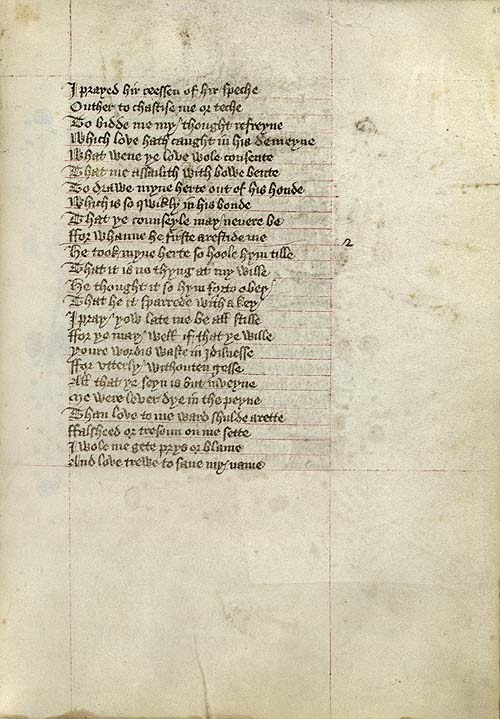 I prayed hir ceessen of hir speche
Outher to chastise me or teche
To bidde me my thought refreyne
Which love hath caught in his demeyne
What wene ye love wole consente
That me assailith with bowe bente
To drawe myne herte out of his honde
Which is so qwikly in his bonde
That ye counseyle may nevere be
ffor whanne he firste arestide me
He took myne herte so hoole hym tille
That it is no thyng at my wille
He thought it so hym forto obey
That he it sparrede with a key
I pray yow late me be all stille
ffor ye may well if that ye wille
youre wordis waste in idilnesse
ffor utterly withouten gesse
All that ye seyn is but in veyne
Me were lever dye in the peyne
Than love to me ward shulde arette
ffalsheed or tresoun on me sette
I wole me gete prys or blame
And love trewe to save my name